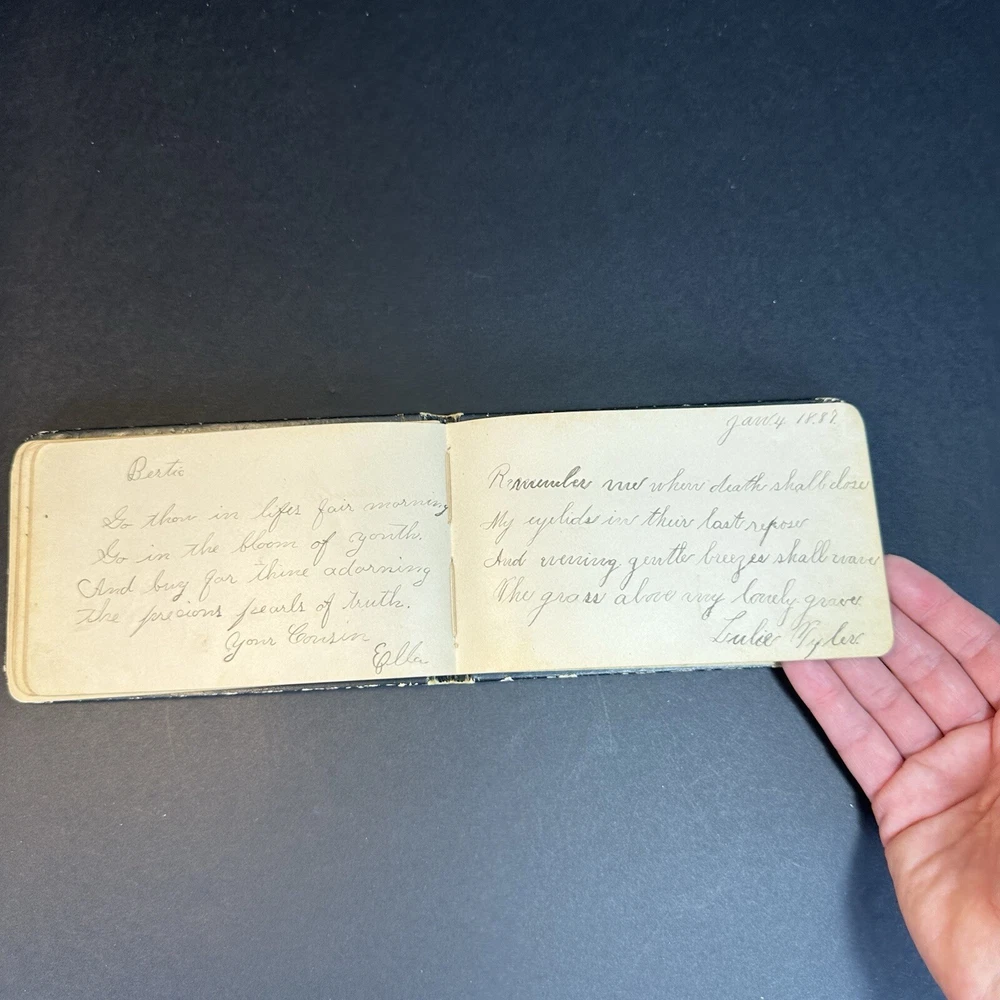 Bertie
Go thou in lifes fair morning
Go in the bloom of youth.
And buy for thine adorning
the presious pearls of truth.
Your Cousin
Ella
Jan 4 1887
Remember me when death shall close
My eyelids in their last repose
And evening gentle breezes shall wave
The grass above my lonely grave.
Lulie Tyler